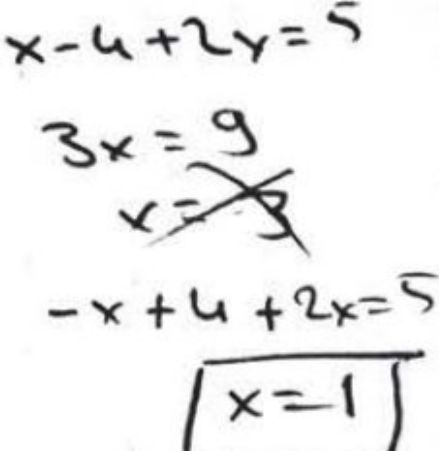 x-4+2x=5
3x=9
x=3
-x+4+2x=5
x=1